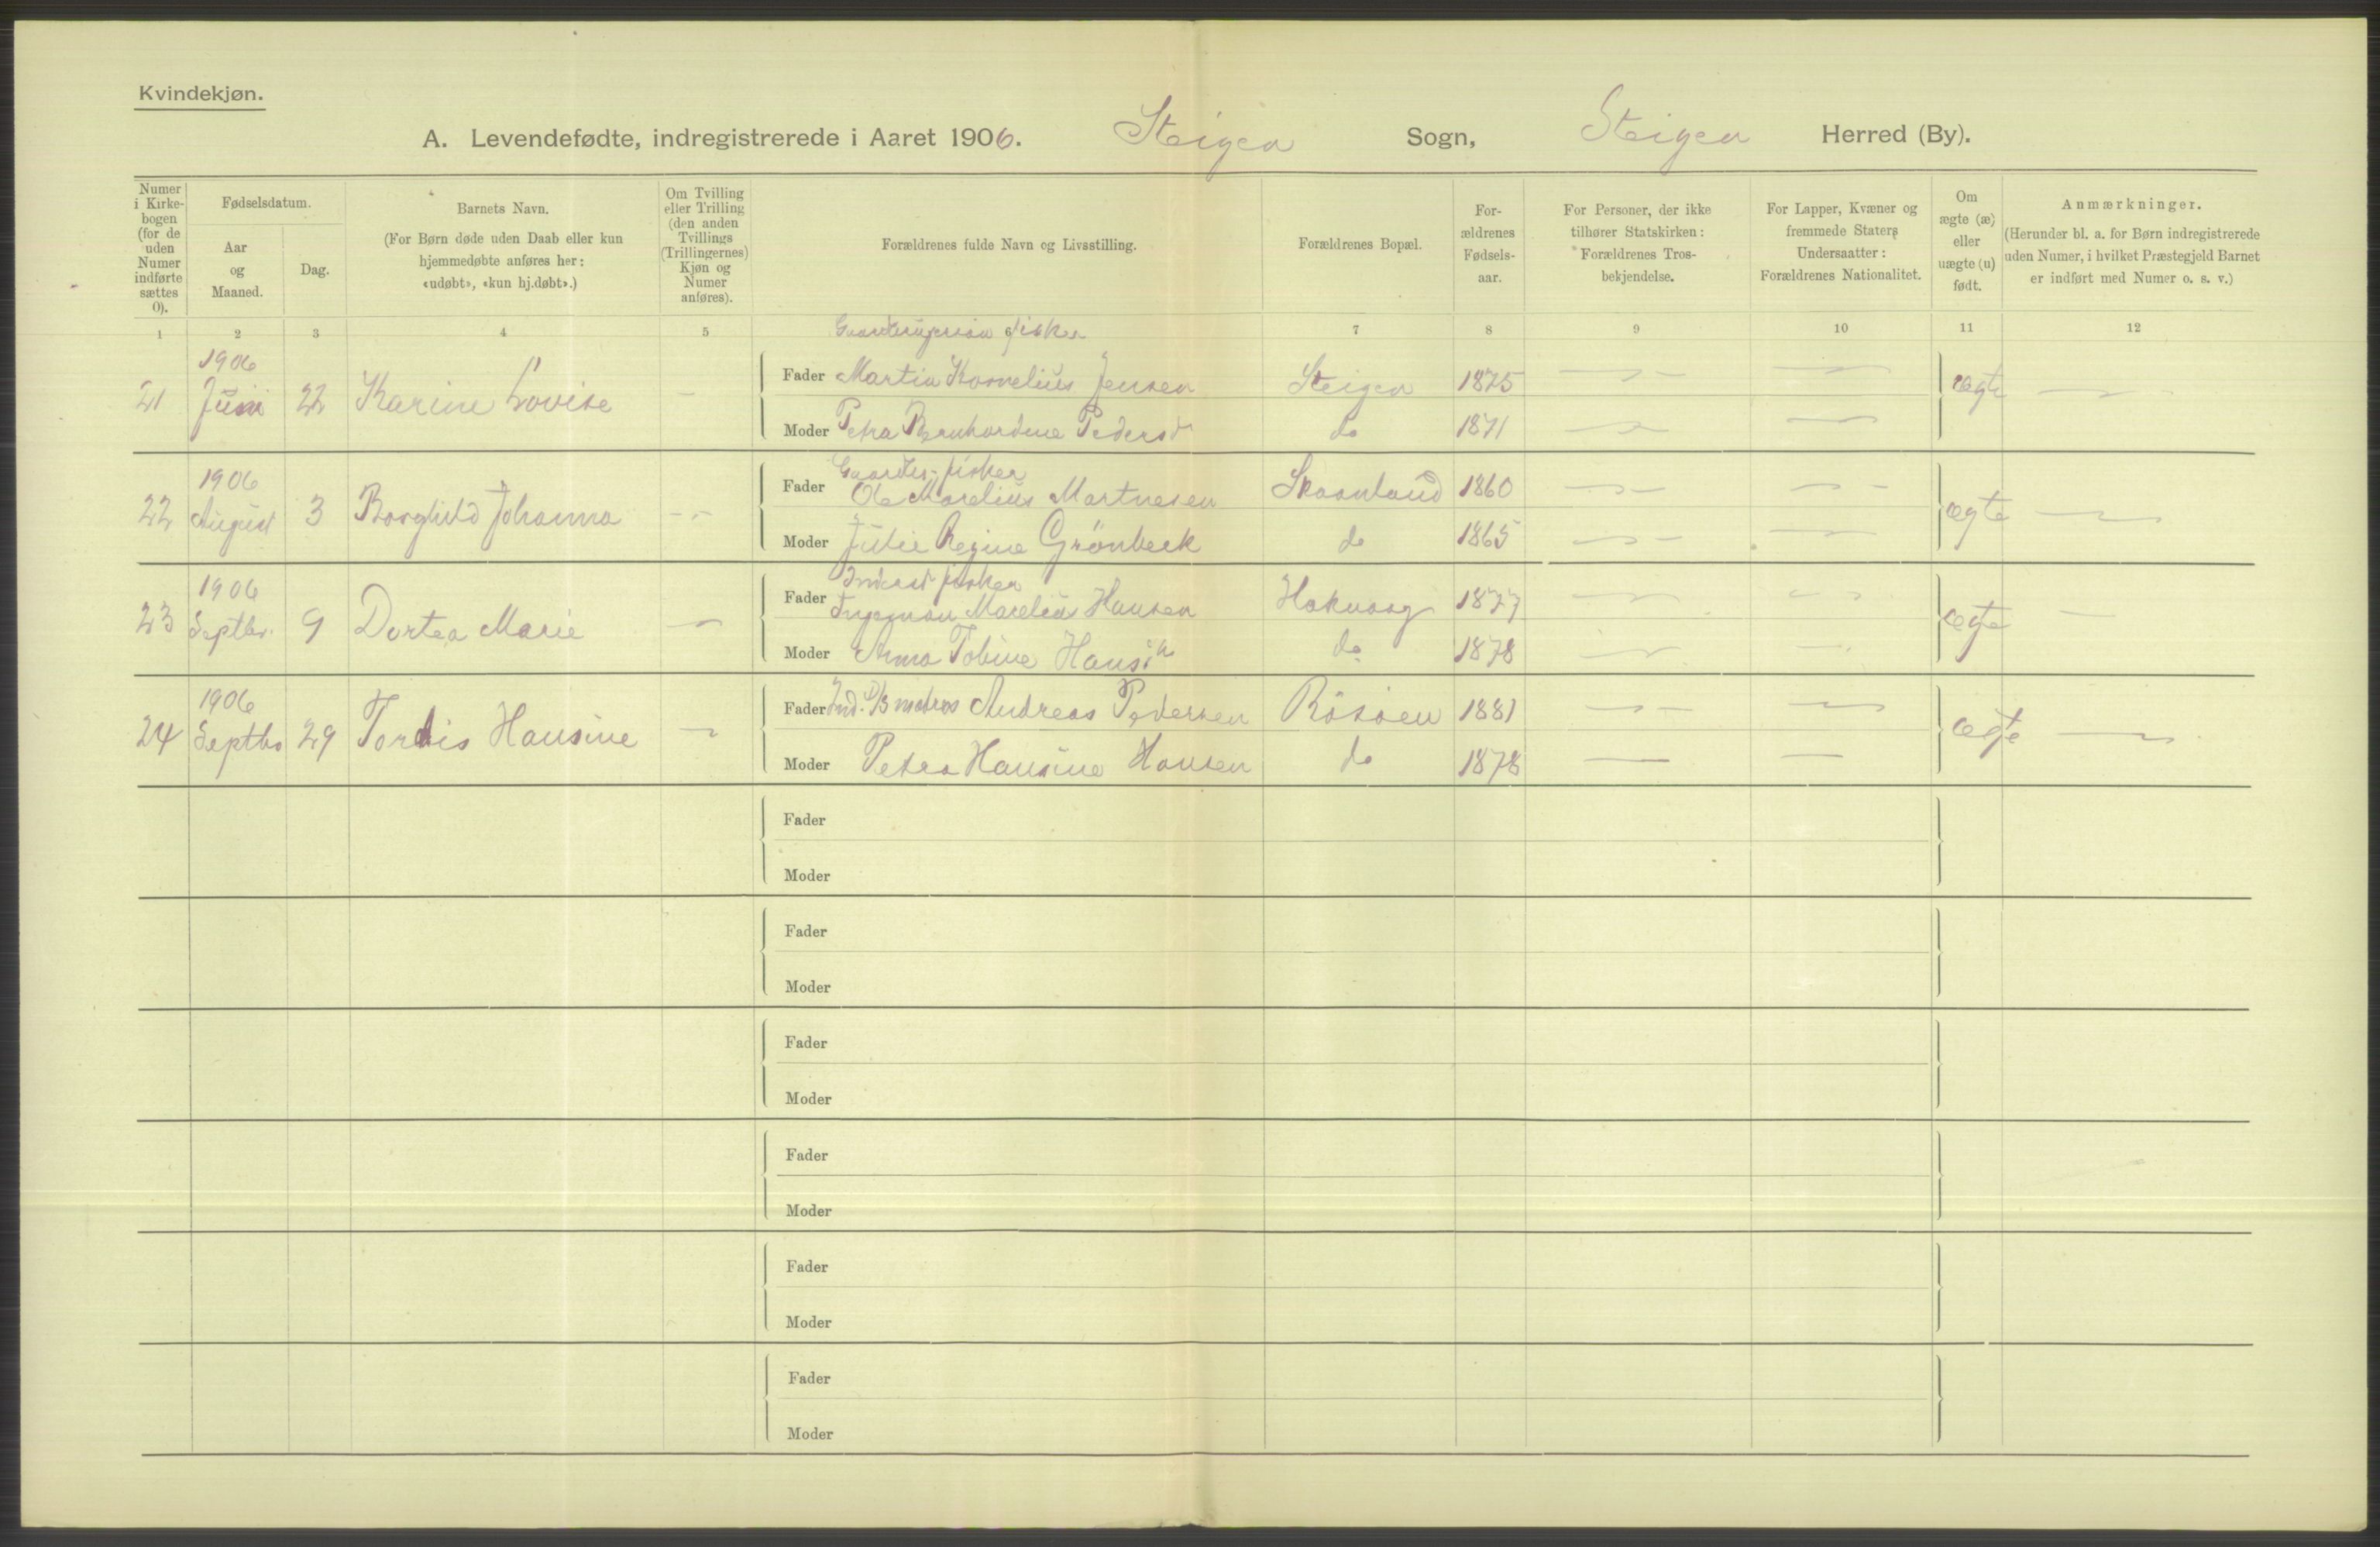 Kvindekjøn.
A. Levendefødte, indregistrerede i Aaret 1906. Steigen Sogn, Steigen Herred (By).
Numer i Kirkebogen (for de uden Numer indførte sættes 0).
Fødselsdatum.
Aar og Maaned.
Dag.
Barnets Navn.
(For Børn døde uden Daab eller kun hjemmedøbte anføres her: «udøbt», «kun hj.døbt».)
Om Tvilling eller Trilling (den anden Tvillings (Trillingernes) Kjøn og Numer anføres).
Forældrenes fulde Navn og Livsstilling.
Forældrenes Bopæl.
Forældrenes Fødselsaar.
For Personer, der ikke tilhører Statskirken: Forældrenes Trosbekjendelse.
For Lapper, Kvæner og fremmede Staters Undersaatter: Forældrenes Nationalitet.
Om ægte (æ) eller uægte (u) født.
Anmærkninger.
(Herunder bl. a. for Børn indregistrerede uden Numer, i hvilket Præstegjeld Barnet er indført med Numer o. s. v.)
1 2 3 4 5 6 7 8 9 10 11 12
fisker
21 1906 Juni 22 Karine Lovise - Fader Martin Kornelius Jensen Steigen 1875 ægte
Moder Petra Bernhardine Pedersd do 1871
Gaardbr. fisker
22 1906 August 3 Borghild Johanna - Fader Ole Marelius Martnesen Skaanland 1860 ægte
Moder Julie Regine Grönbeck do 1865
Inderst fisker
23 1906 Septbr. 9 Dortea Marie - Fader Ingeman Marelius Hansen Haknaag 1877 ægte
Moder Anna Tobine Hansdn do 1878
24 1906 Septbr 29 Tordis Hansine - Fader Ind. D/B matros Andreas Pedersen Rösöen 1881 ægte
Moder Petra Hansine Hansen do 1878
Fader
Moder
Fader
Moder
Fader
Moder
Fader
Moder
Fader
Moder
Fader
Moder